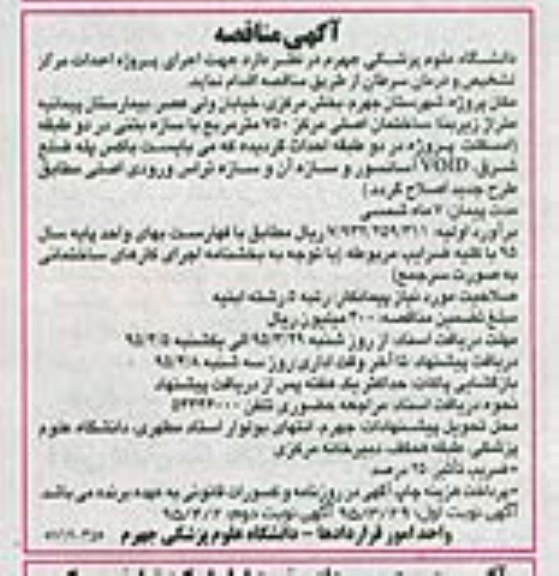 آگهی مناقصه
دانشگاه علوم پزشکی جهرم در نظر دارد جهت اجرای پروژه احداث مرکز
تشخیص و درمان سرطان از طریق مناقصه اقدام نماید.
مکان پروژه: شهرستان جهرم، بخش مرکزی، خیابان ولی عصر، بیمارستان پیمانیه
متراژ زیربنا: ساختمان اصلی مرکز ۷۵۰ مترمربع با سازه بتنی در دو طبقه
(اسکلت پروژه در دو طبقه احداث گردیده که می بایست باکس پله ضلع
شرق، VOID آسانسور و سازه آن و سازه تراس ورودی اصلی مطابق
طرح جدید اصلاح گردد.)
مدت پیمان: ۷ ماه شمسی
برآورد اولیه: ۷/۹۳۲/۲۵۹/۳۱۱ ریال مطابق با فهارست بهای واحد پایه سال
۹۵ با کلیه ضرایب مربوطه (با توجه به بخشنامه اجرای کارهای ساختمانی
به صورت سرجمع)
صلاحیت مورد نیاز پیمانکار: رتبه ۵ رشته ابنیه
مبلغ تضمین مناقصه: ۴۰۰ میلیون ریال
مهلت دریافت اسناد: از روز شنبه ۹۵/۳/۲۹ الی یکشنبه ۹۵/۴/۵
دریافت پیشنهاد: تا آخر وقت اداری روز سه شنبه ۹۵/۴/۸
بازگشایی پاکات: حداکثر یک هفته پس از دریافت پیشنهاد
نحوه دریافت اسناد: مراجعه حضوری تلفن
محل تحویل پیشنهادات: جهرم، انتهای بولوار استاد مطهری، دانشگاه علوم
پزشکی طبقه همکف، دبیرخانه مرکزی
*ضریب تاثیر: ۲۵ درصد
*پرداخت هزینه چاپ آگهی در روزنامه و کسورات قانونی به عهده برنده می باشد.
آگهی نوبت اول: ۹۵/۳/۲۹ آگهی نوبت دوم: ۹۵/۴/۲
واحد امور قراردادها - دانشگاه علوم پزشکی جهرم